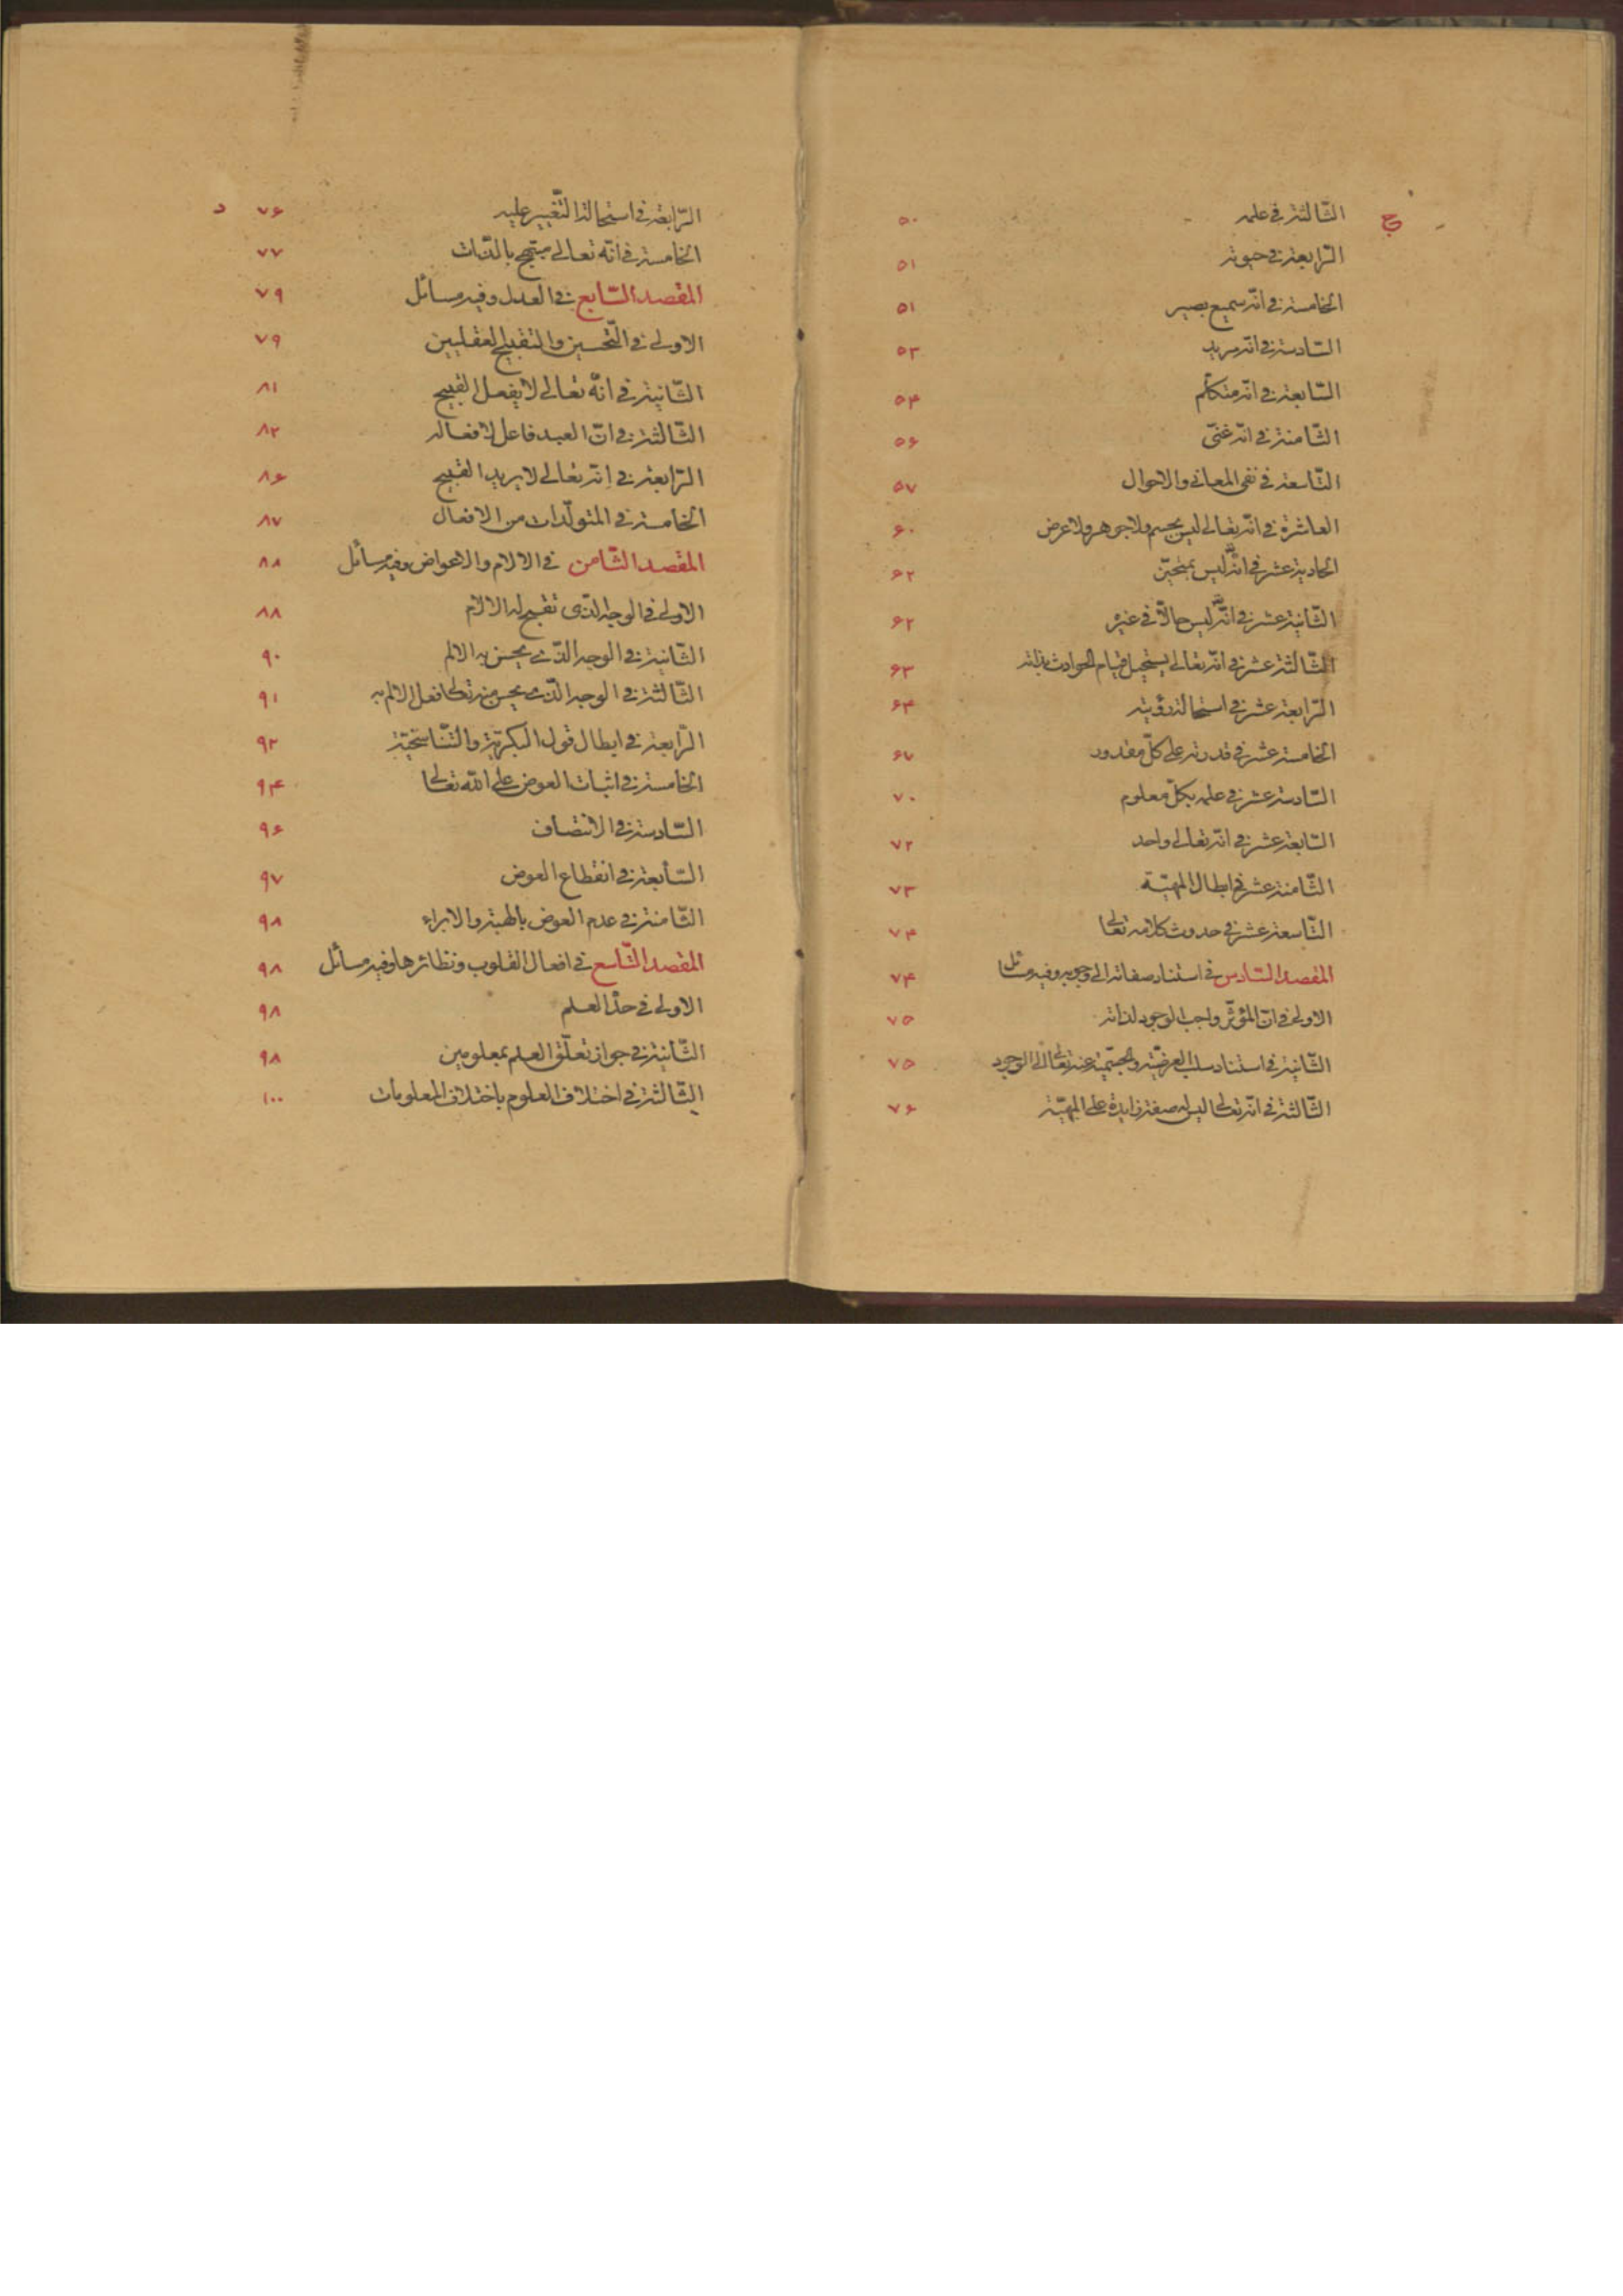 ج
الثّالثة في علمه ۵۰
الرّابعة في حيوته ۵۱
الخامسة في انّه سميع بصير ۵۱
السّادسة في انّه مريد ۵۳
السّابعة في انّه متكلّم ۵۴
الثّامنة في انّه غنىّ ۵۶
التّاسعة في نفى المعانى والاحوال ۵۷
العاشرة في انّه تعالى ليس بجسم ولا جوهر ولا عرض ۶۰
الحادية عشر في انّه ليس بمتحيّز ۶۲
الثّانية عشر في انّه ليس حالّا في غيره ۶۲
الثّالثة عشر في انّه تعالى يستحيل قيام الحوادث بذاته ۶۳
الرّابعة عشر في استحالة رؤيته ۶۴
الخامسة عشر في قدرته على كلّ مقدور ۶۷
السّادسة عشر في علمه بكلّ معلوم ۷۰
السّابعة عشر في انّه تعالى واحد ۷۲
الثّامنة عشر في ابطال المهيّة ۷۳
التّاسعة عشر في حدوث كلامه تعالى ۷۴
المقصد السّادس في استناد صفاته الى وجوبه وفيه مسائل ۷۴
الاولى في انّ المؤثّر واجب الوجود لذاته ۷۵
الثّانية في استناد سلب العرضيّة والجسميّة عنه تعالى الى الوجود ۷۵
الثّالثة في انّه تعالى ليس له صفة زايدة على المهيّة ۷۶
د
الرّابعة في استحالة التّغيير عليه ۷۶
الخامسة في انّه تعالى مبتهج بالذّات ۷۷
المقصد السّابع في العدل وفيه مسائل ۷۹
الاولى في التّحسين والتقبيح العقليين ۷۹
الثّانية في انّه تعالى لا يفعل القبيح ۸۱
الثّالثة في انّ العبد فاعل لافعاله ۸۲
الرّابعة في انّه تعالى لا يريد القبيح ۸۶
الخامسة في المتولّدات من الافعال ۸۷
المقصد الثّامن في الالام والاعواض وفيه مسائل ۸۸
الاولى في الوجه الّذى تقبح له الالام ۸۸
الثّانية في الوجه الّذى يحسن به الالم ۹۰
الثّالثة في الوجه الّذى يحسن منه تعالى فعل الالم به ۹۱
الرّابعة في ابطال قول البكريّة والتّناسخيّة ۹۲
الخامسة في اثبات العوض على اللّه تعالى ۹۴
السّادسة في الانتصاف ۹۶
السّابعة في انقطاع العوض ۹۷
الثّامنة في عدم العوض بالهبة والابراء ۹۸
المقصد التّاسع في افعال القلوب ونظائرها وفيه مسائل ۹۸
الاولى في حدّ العلم ۹۸
الثّانية في جواز تعلّق العلم بمعلومين ۹۸
الثّالثة في اختلاف العلوم باختلاف المعلومات ۱۰۰